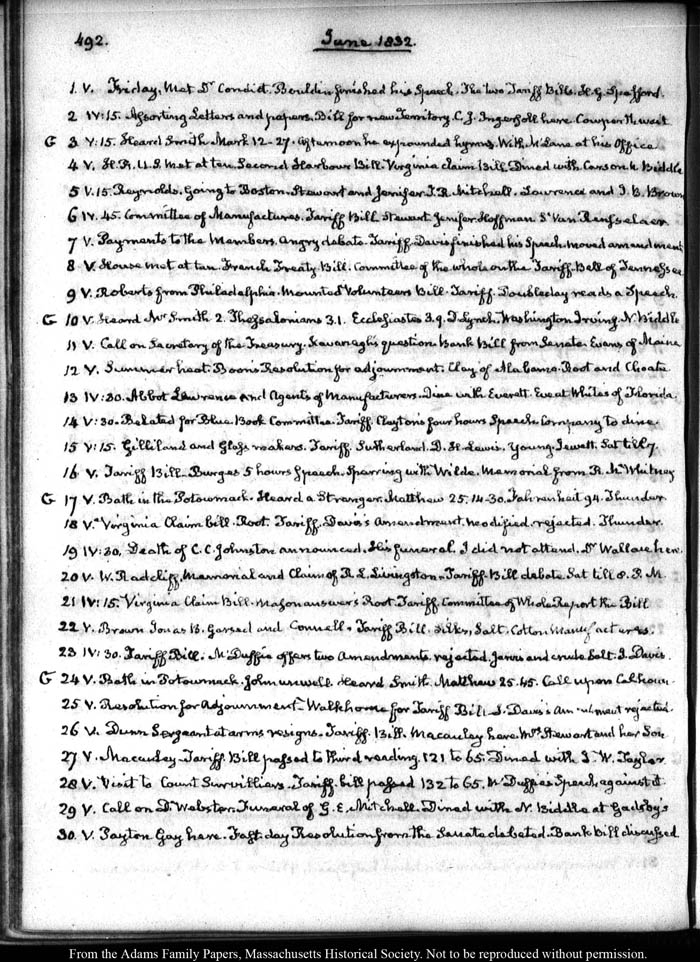 492.
June 1832.
1 V. Friday. Met Dr Condict. Bouldin finished his Speech. The two Tariff Bills. H. G. Spafford.
2 IV:15. Assorting Letters and papers. Bill for new Territory. C. J. Ingersoll here. Cowperthwait
G 3 V:15. Heard Smith. Mark 12-27. Afternoon he expounded hymns. With McLane at his Office
4 V. H.R. U.S. met at ten. Second Harbour Bill. Virginia claim Bill. Dined with Carson & Biddle
5 V.15. Reynolds. Going to Boston. Stewart and Jenifer. T. R. Mitchell. Lawrence and J. B. Brown
6 IV.45. Committee of Manufactures. Tariff Bill. Stewart Jenifer Hoffman S. Van Rensselaer
7 V. Payments to the Members. Angry debate. Tariff. Davis finished his Speech. moved amendment
8 V. House met at ten. French Treaty Bill. Committee of the whole on the Tariff. Bell of Tennessee
9 V. Roberts from Philadelphia. Mounted Volunteers Bill. Tariff. Doubleday reads a Speech.
G 10 V. Heard Mr Smith 2. Thessalonians 3.1. Ecclesiastes 3.9. D. Lynch. Washington Irving. N. Biddle
11 V. Call on Secretary of the Treasury. Kavanagh's question. Bank Bill from Senate. Evans of Maine
12 V. Summer heat. Boon's Resolution for adjournment. Clay of Alabama. Root and Choate
13 IV:30. Abbot Lawrence and Agents of Manufacturers. Dine with Everett. Eve at White's of Florida.
14 V:30. Belated for Blue Book Committee. Tariff. Clayton's four hours Speech. Company to dine.
15 V:15. Gilliland and Glass makers. Tariff. Sutherland. D. H. Lewis. Young. Jewett. Sat till 7.
16 V. Tariff Bill. Burges 5 hours Speech. Sparring with Wilde. Memorial from R. M. Whitney
G 17 V. Bath in the Potowmack. Heard a Stranger. Matthew 25.14-30. Fahrenheit 94. Thunder
18 V. Virginia Claim bill. Root. Tariff. Davis's Amendment. modified. rejected. Thunder.
19 IV:30. Death of C. C. Johnston announced. His funeral. I did not attend. Dr Wallach here.
20 V. W. Radcliff, Memorial and Claim of R. L. Livingston. Tariff Bill debate. Sat till 8. P.M.
21 IV:15. Virginia Claim Bill. Mason answers Root. Tariff. Committee of Whole Report the Bill
22 V. Brown Jonas B. Garsed and Connell. Tariff Bill. Silks, Salt. Cotton Manufactures.
23 IV:30. Tariff Bill. McDuffie offers two Amendments. rejected. Jarvis and crude Salt. J. Davis.
G 24 V. Bath in Potowmack. John unwell. Heard Smith. Matthew 25.45. Call upon Calhoun.
25 V. Resolution for Adjournment. Walk home for Tariff Bill J. Davis's Amendment rejected.
26 V. Dunn Sergeant at arms resigns. Tariff Bill. Macauley here. Mrs Stewart and her Son
27 V. Macauley. Tariff Bill passed to third reading. 121 to 65. Dined with J. W. Taylor.
28 V. Visit to Count Survilliers. Tariff bill passed 132 to 65. McDuffie's Speech against it
29 V. Call on D. Webster. Funeral of G. E. Mitchell. Dined with N. Biddle at Gadsby's
30. V. Payton Gay here. Fast day Resolution from the Senate debated. Bank Bill discussed.
From the Adams Family Papers, Massachusetts Historical Society. Not to be reproduced without permission.